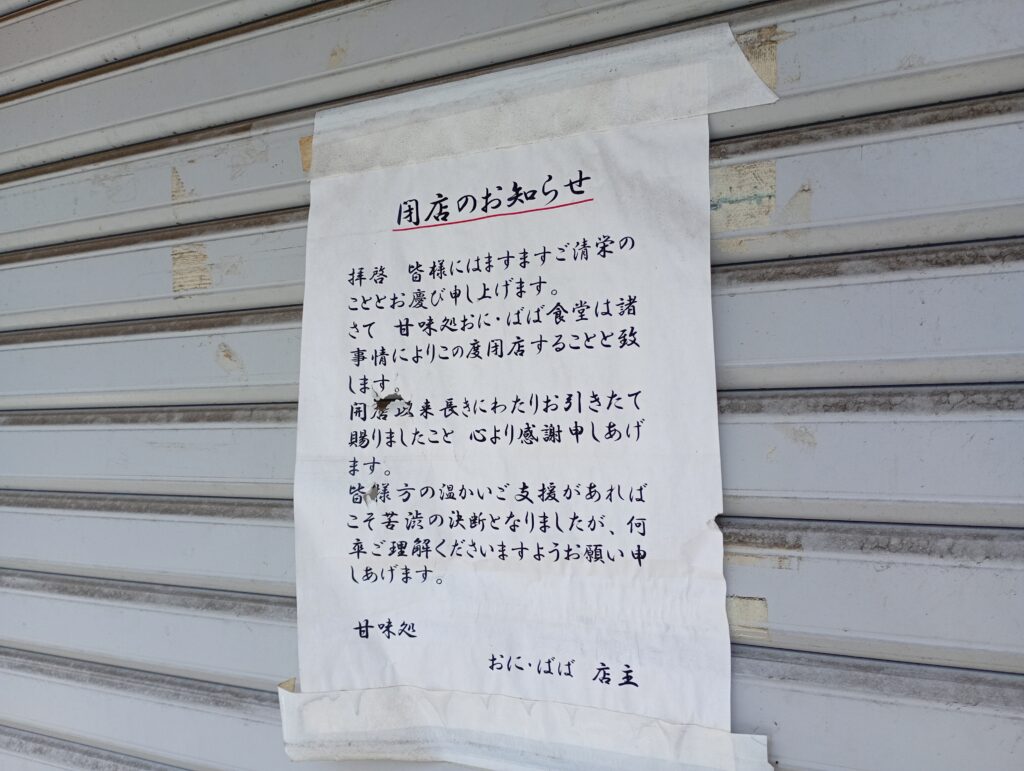 閉店のお知らせ
拝啓　皆様にはますますご清栄の
こととお慶び申し上げます。
さて　甘味処おに・ばば食堂は諸
事情によりこの度閉店することと致
します。
開店以来長きにわたりお引きたて
賜りましたこと　心より感謝申しあげ
ます。
皆様方の温かいご支援があれば
こそ苦渋の決断となりましたが、何
卒ご理解くださいますようお願い申
しあげます。
甘味処
おに・ばば　店主